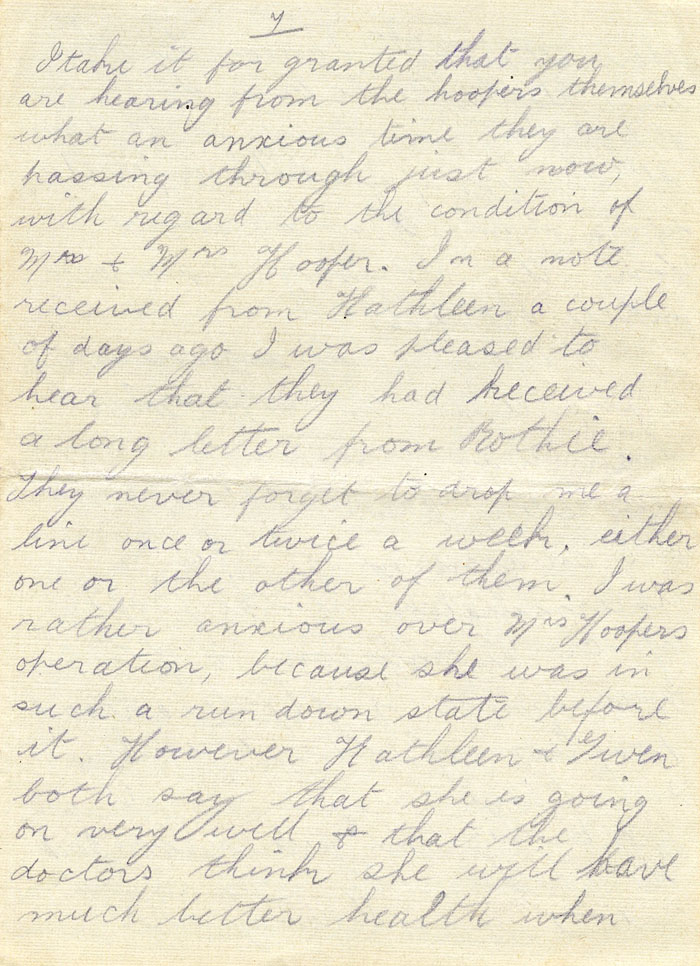 7
I take it for granted that you
are hearing from the hoopers themselves
what an anxious time they are
passing through just now,
with regard to the condition of
& Mrs Hooper. In a note
received from Kathleen a couple
of days ago I was pleased to
hear that they had received
a long letter from Rothie.
They never forget to drop me a
line once or twice a week, either
one or the other of them. I was
rather anxious over Mrs Hoopers
operation, because she was in
such a run down state before
it. However Kathleen & Gwen
both say that she is going
on very well & that the
doctors think she will have
much better health when